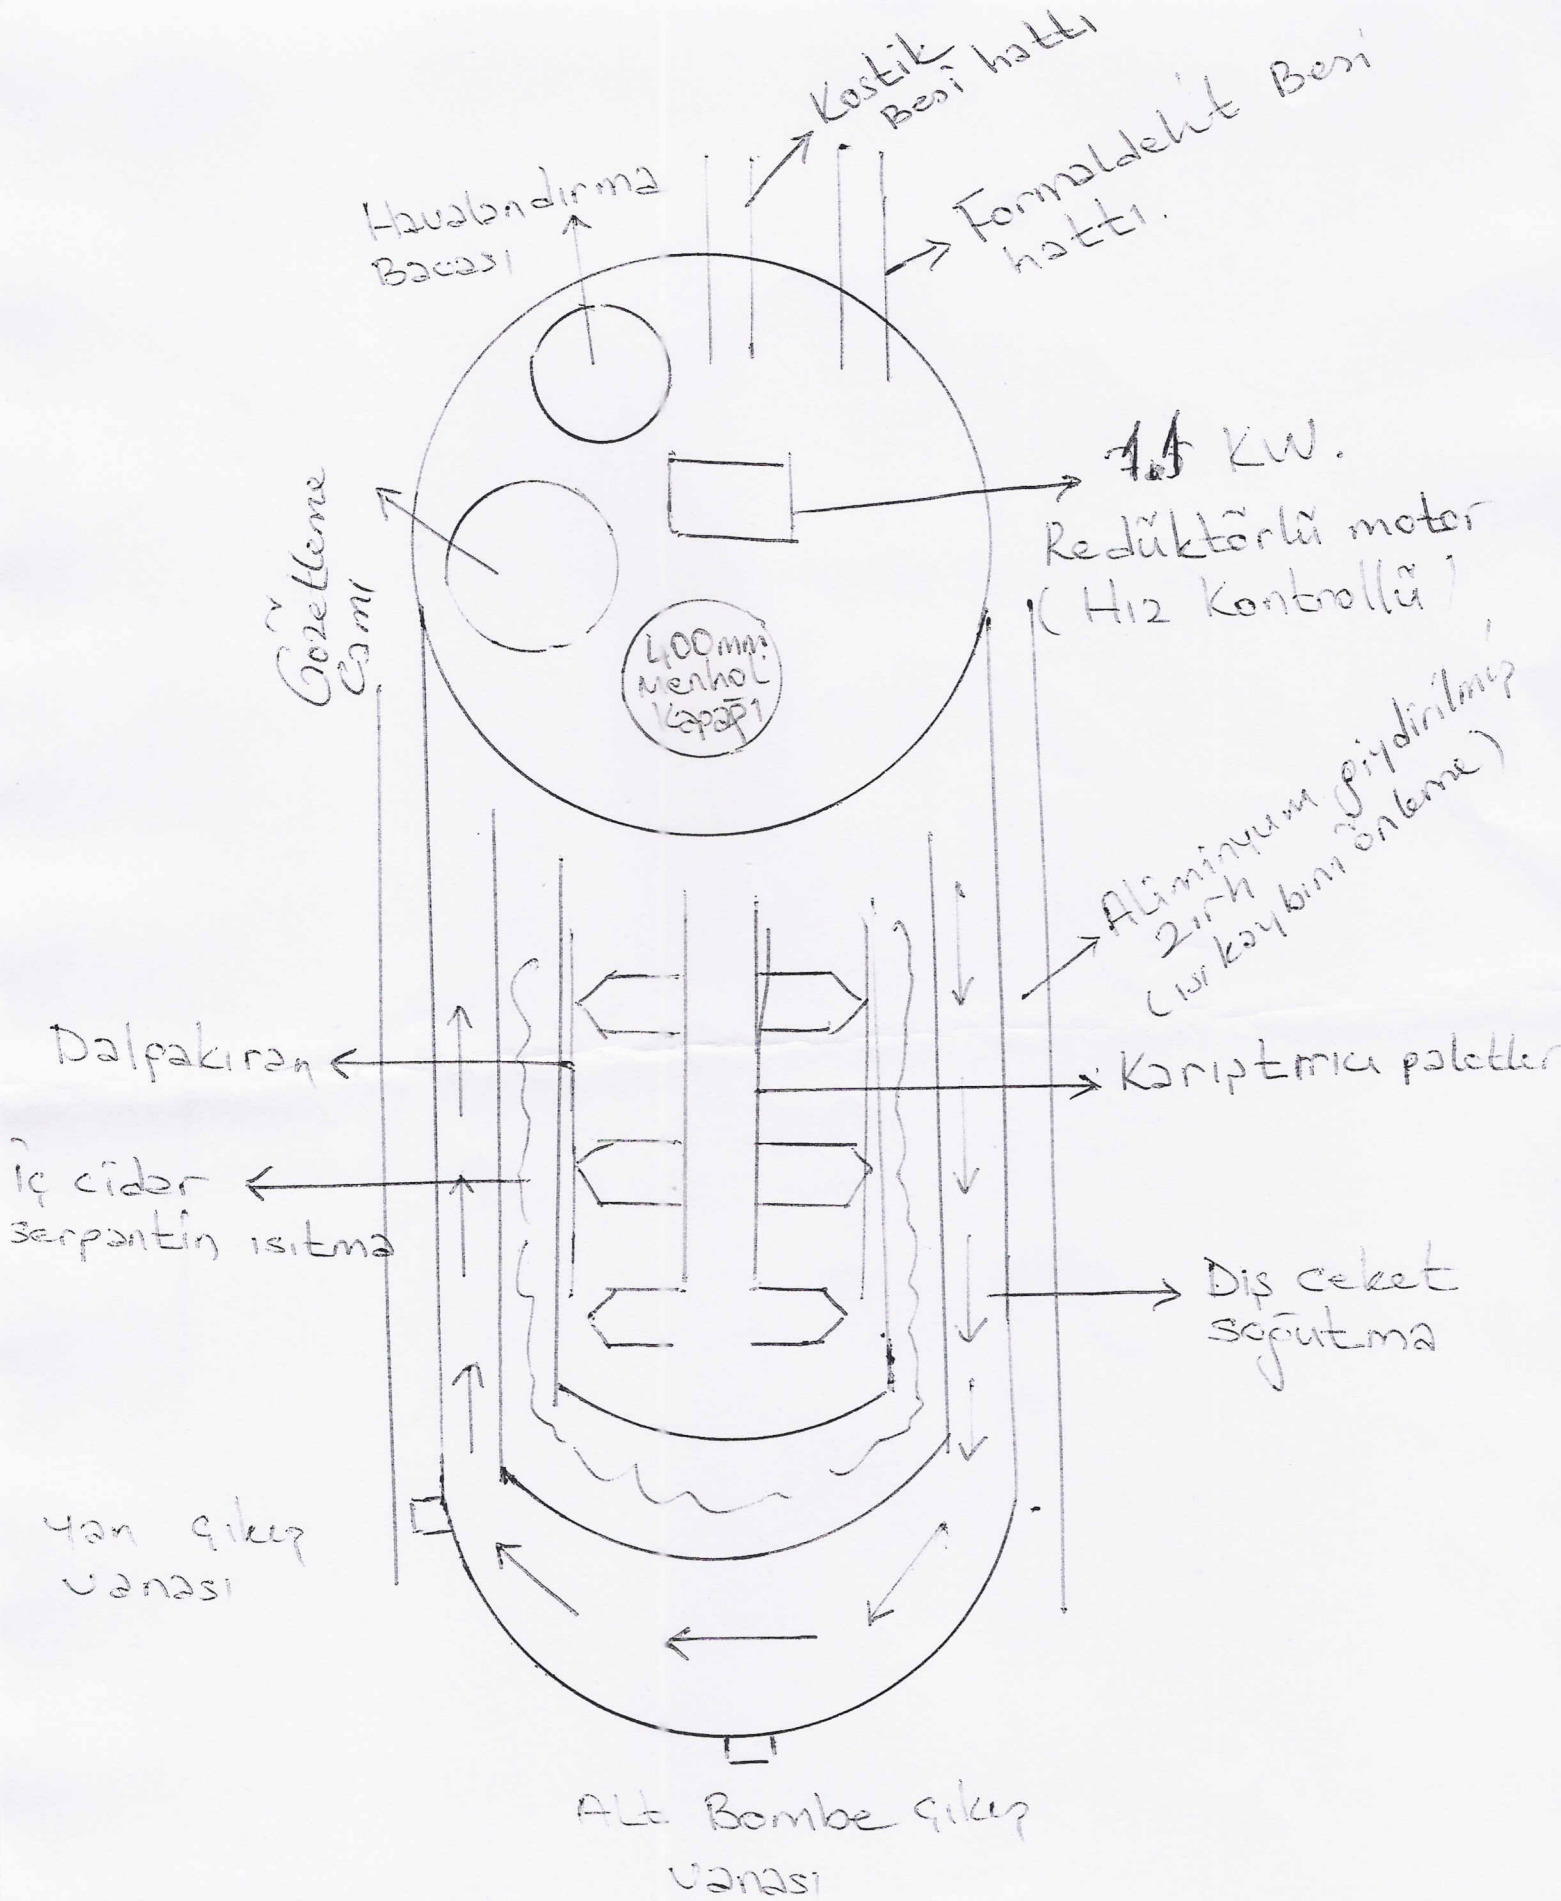 Kostik
Besi hattı
Formaldehit Besi
hattı.
Havalandırma
Bacası
KW.
Redüktörlü motor
(Hız Kontrollü)
Gözetleme
Camı
400mm.
Menhol
Kapağı
Alüminyum giydirilmiş
zırh
(ısı kaybını önleme)
Dalgakıran
Karıştırıcı paletler
İç cidar
serpantin ısıtma
Dış ceket
soğutma
Yan çıkış
vanası
Alt Bombe çıkış
vanası